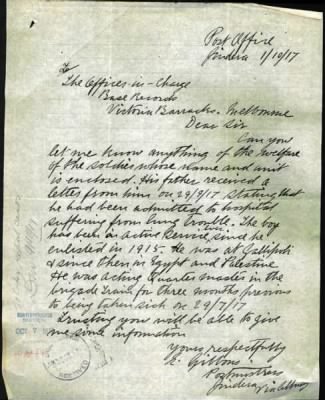 Post Office
Jindera 1/10/17
To
The Officer-in-Charge
Base Records
Victoria Barracks. Melbourne
Dear Sir
Can you
let me know anything of the welfare
of the soldier whose name and unit
is enclosed. His father received a
letter from him on 28/9/17 stating that
he had been admitted to hospital
suffering from lung trouble. The boy
has been in active service since he
enlisted in 1915. He was at Gallipoli
& since then in Egypt and Palestine
He was acting Quarter master in the
brigade train for three months previous
to being taken sick on 29/7/17
Trusting you will be able to give
me some information
Yours respectfully
E. Gibbons
Postmistress
Jindera via Albury
OCT
RECEIVED